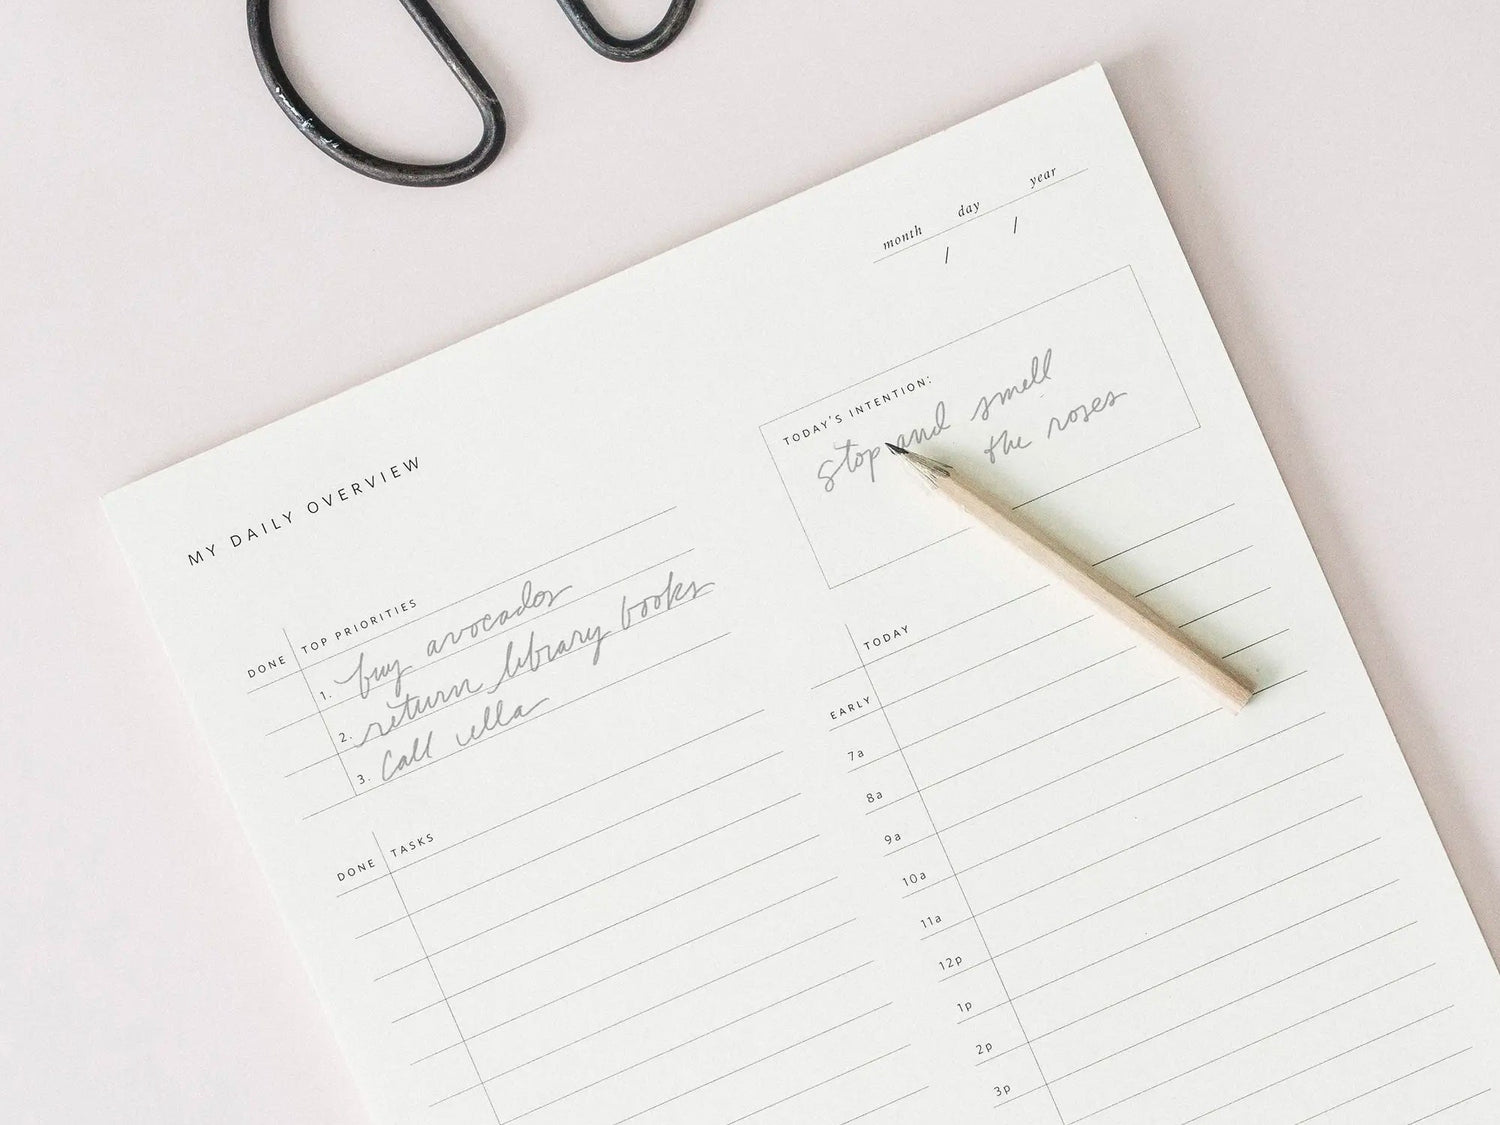 month day year
/ /
MY DAILY OVERVIEW
DONE TOP PRIORITIES
1. buy avocados
2. return library books
3. call ella
DONE TASKS
TODAY'S INTENTION:
stop and smell
the roses
TODAY
EARLY
7a
8a
9a
10a
11a
12p
1p
2p
3p